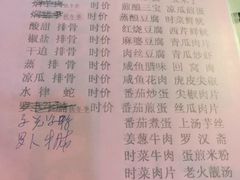 时价 煎酿三宝 凉瓜煎蛋
时价 煎酿豆腐 时菜鲜鱿
酸甜排骨 时价 红烧豆腐 西芹鲜鱿
椒盐排骨 时价 麻婆豆腐 青瓜肉片
干迫排骨 时价 肉丝豆腐 青瓜炒蛋
蒸排骨 时价 咸鱼腊味 回窝肉
凉瓜排骨 时价 咸鱼花肉 虎皮尖椒
水律蛇 时价 番茄炒蛋 尖椒肉片
时价 番茄煎蛋 丝瓜肉片
番茄煮蛋 上汤芋丝
姜葱牛肉 罗汉斋
时菜牛肉 蛋煎米粉
时菜肉片 老火靓汤